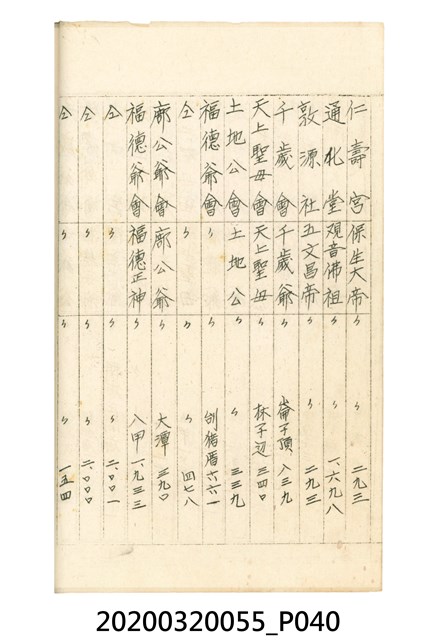 仁壽宮 保生大帝 〃 〃 二九三
通化堂 观音佛祖 〃 〃 一、六九八
敦源社 五文昌帝 〃 〃 二九三
千歲會 千歲爺 〃 崙子頂 八三九
天上聖母會 天上聖母 〃 林子边 三四〇
土地公會 土地公 〃 〃 三三九
福德爺會 〃 〃 刣猪厝 六六一
仝 〃 〃 〃 四七八
廍公爺會 廍公爺 〃 大潭 三九〇
福德爺會 福德正神 〃 八甲 一、九三三
仝 〃 〃 〃 二、〇〇一
仝 〃 〃 〃 二、〇〇〇
仝 〃 〃 〃 一五四
20200320055_P040